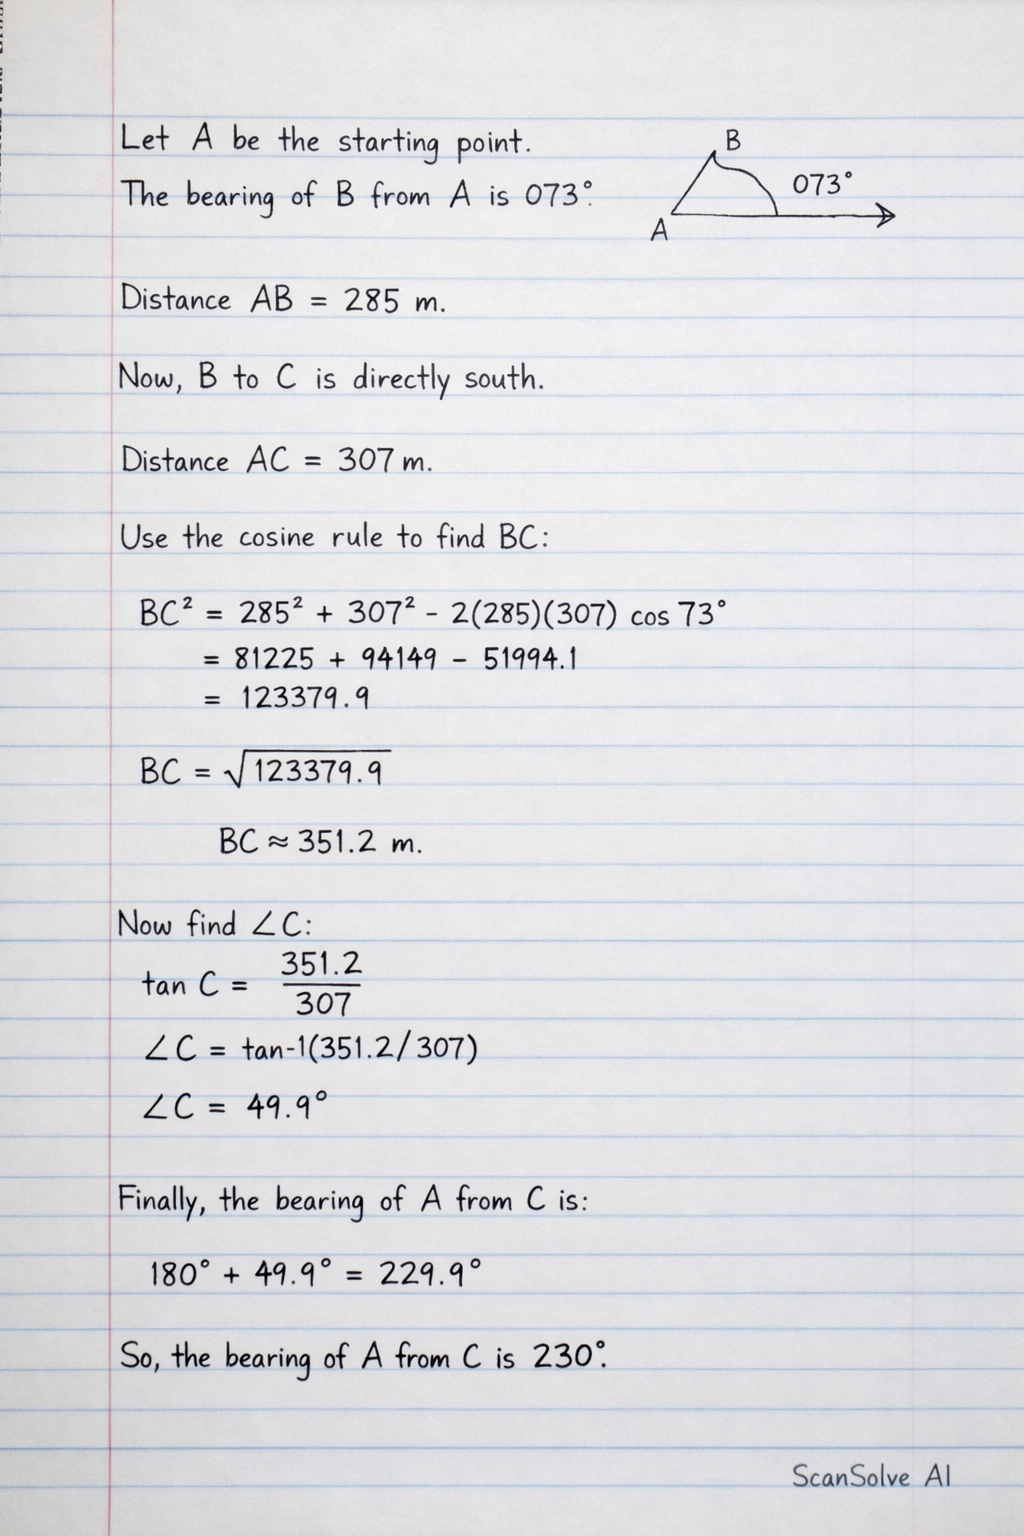 Let A be the starting point.
B
The bearing of B from A is 073°.
073°
A
Distance AB = 285 m.
Now, B to C is directly south.
Distance AC = 307 m.
Use the cosine rule to find BC:
BC² = 285² + 307² - 2(285)(307) cos 73°
= 81225 + 94149 - 51994.1
= 123379.9
BC = √123379.9
BC ≈ 351.2 m.
Now find ∠C:
tan C = 351.2
307
∠C = tan-1(351.2/307)
∠C = 49.9°
Finally, the bearing of A from C is:
180° + 49.9° = 229.9°
So, the bearing of A from C is 230°.
ScanSolve AI